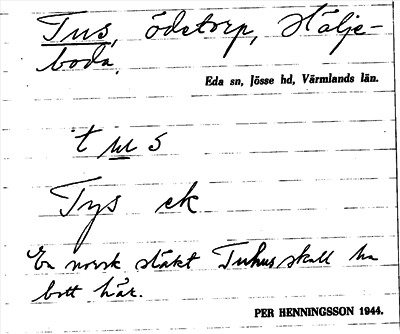 Tus, ödetorp, Hälje-
boda.
Eda sn, Jösse hd, Värmlands län.
t u s
Tys ek
En norsk släkt Tuhus skall ha
bott här.
PER HENNINGSSON 1944.